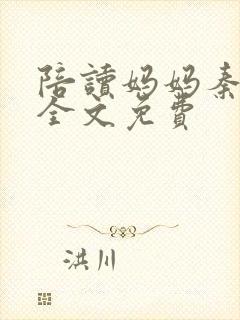 陪讀妈妈秦
全文免費
洪川